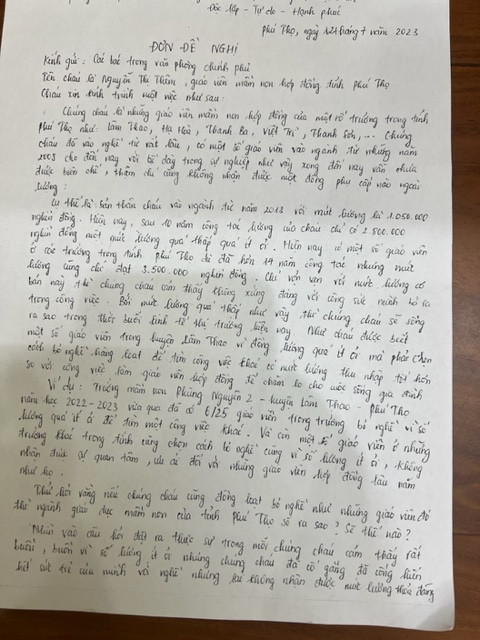 Độc lập - Tự do - Hạnh phúc
Phú Thọ, ngày 12 tháng 7 năm 2023
ĐƠN ĐỀ NGHỊ
Kính gửi: Các bác trong văn phòng chính phủ
Tên cháu là Nguyễn Thị Thêm, giáo viên mầm non hợp đồng tỉnh Phú Thọ
Cháu xin trình một việc như sau:
Chúng cháu là những giáo viên mầm non hợp đồng của một số trường trong tỉnh
Phú Thọ như: Lâm Thao, Hạ Hoà, Thanh Ba, Việt Trì, Thanh Sơn, ... Chúng
cháu đã vào nghề từ rất lâu, có một số giáo viên vào ngành từ những năm
2003 cho đến nay với bề dày trong sự nghiệp như vậy xong đến nay vẫn chưa
được biên chế, thậm chí cũng không nhận được một đồng phụ cấp nào ngoài
lương:
Cụ thể là: Bản thân cháu vào ngành từ năm 2013 với mức lương là 1.050.000
nghìn đồng. Hiện nay, sau 10 năm công tác lương của cháu chỉ có 2.500.000
nghìn đồng một mức lương quá thấp quá ít ỏi. Hiện nay có một số giáo viên
ở các trường trong tỉnh Phú Thọ dù đã hơn 19 năm công tác nhưng mức
lương cũng chỉ đạt 3.500.000 nghìn đồng. Chỉ vỏn vẹn với mức lương cơ
bản này thì chúng cháu cảm thấy không xứng đáng với công sức mình bỏ ra
trong công việc. Bởi mức lương quá thấp như vậy thì chúng cháu sẽ sống
ra sao trong thời buổi kinh tế thị trường hiện nay. Như cháu được biết
một số giáo viên trong huyện Lâm Thao vì đồng lương quá ít ỏi mà phải chọn
cách bỏ nghề hàng loạt để tìm công việc khác có mức lương thu nhập tốt hơn
so với công việc làm giáo viên hợp đồng để chăm lo cho cuộc sống gia đình
Ví dụ: Trường mầm non Phùng Nguyên 2 - huyện Lâm Thao - Phú Thọ
năm học 2022-2023 vừa qua đã có 6/25 giáo viên trong trường bỏ nghề vì số
lương quá ít ỏi để tìm một công việc khác. Và còn một số giáo viên ở những
trường khác trong tỉnh cũng chọn cách bỏ nghề cũng vì số lương ít ỏi, không
nhận được sự quan tâm, ưu ái đối với những giáo viên hợp đồng lâu năm
như họ.
Thử hỏi rằng nếu chúng cháu cũng đồng loạt bỏ nghề như những giáo viên đó
thì ngành giáo dục mầm non của tỉnh Phú Thọ sẽ ra sao? Sẽ thế nào?
Nhìn vào câu hỏi đặt ra thực sự trong mỗi chúng cháu cảm thấy rất
buồn, buồn vì số lương ít ỏi nhưng chúng cháu đã cố gắng đã cống hiến
hết sức trẻ của mình với nghề nhưng lại không nhận được mức lương thỏa đáng